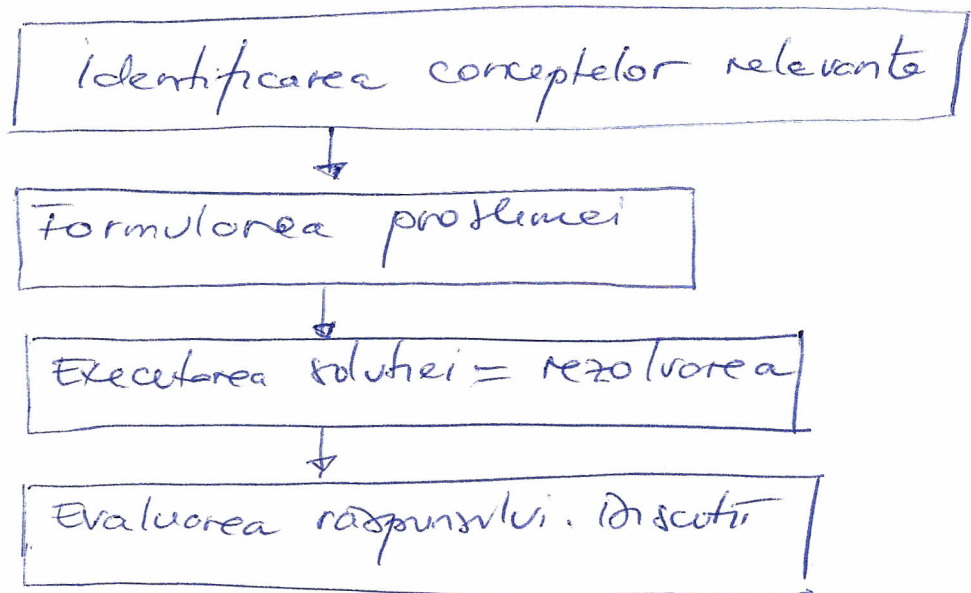 Identificarea conceptelor relevante
Formularea problemei
Executarea soluției = rezolvarea
Evaluarea răspunsului. Discuții